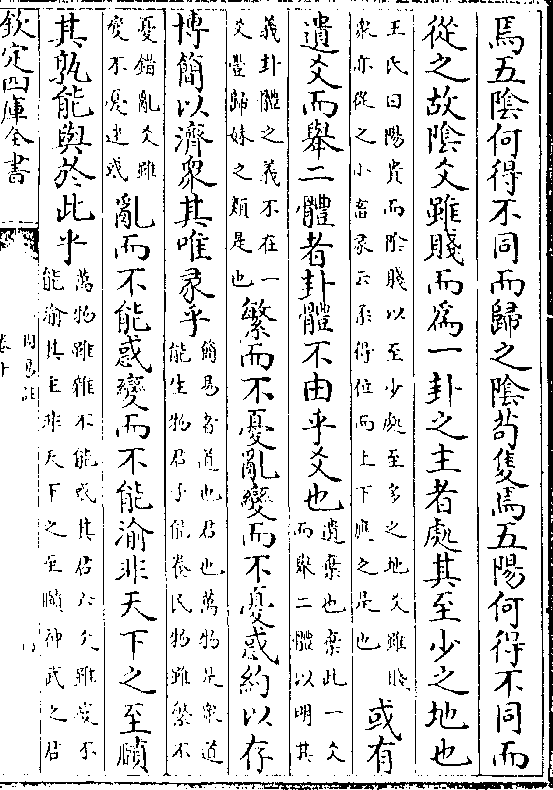 焉五陰何得不同而歸之陰苟隻焉五陽何得不同而
從之故陰爻雖賤而爲一卦之主者處其至少之地也
王氏曰陽貴而陰賤以至少處至多之地爻雖賤
衆亦從之小畜彖云柔得位而上下應之是也
或有
遺爻而舉二體者卦體不由乎爻也
遺棄也棄此一爻
而舉二體以明其
義卦體之義不在一
爻豐歸妹之類是也
繁而不憂亂變而不憂惑約以存
博簡以濟衆其唯彖乎
簡易者道也君也萬物是衆道
能生物君子能養民物雖繁不
憂錯亂爻雖
變不憂迷惑
亂而不能惑變而不能渝非天下之至賾
其孰能與於此乎
萬物雖雜不能惑其君六爻雖變不
能渝其主非天下之至賾神武之君
欽定四庫全書
周易註
卷十